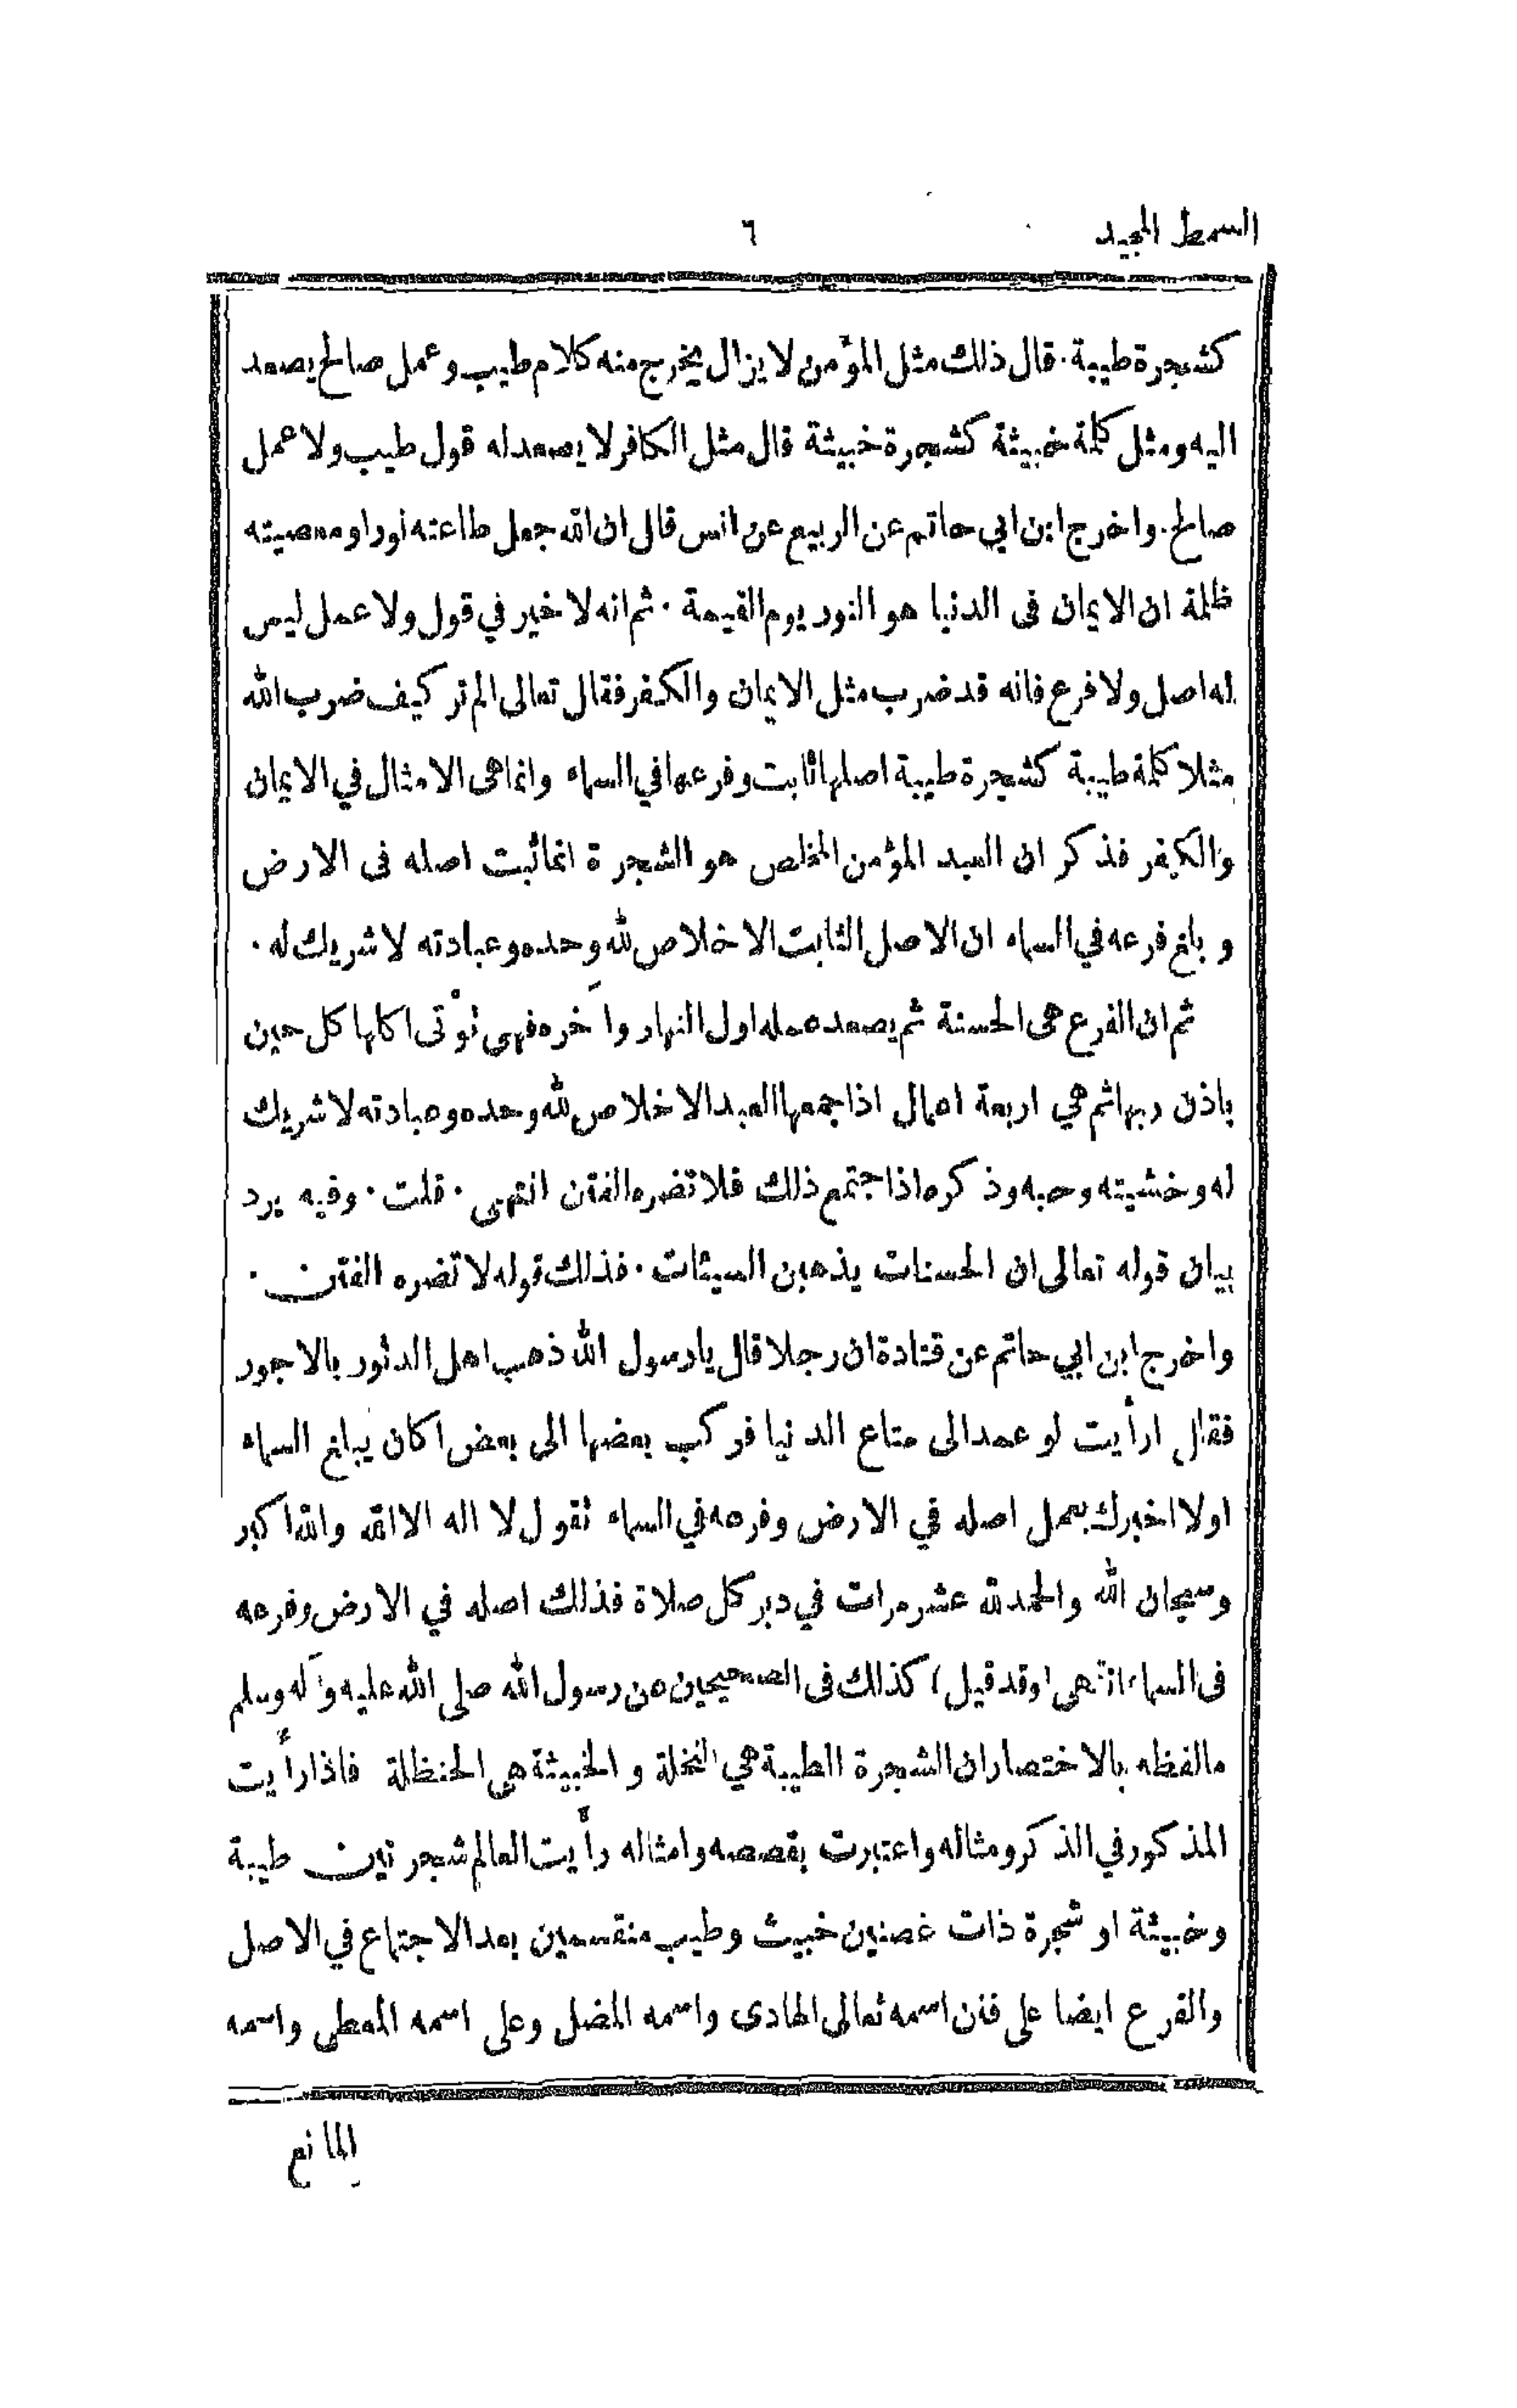 السمط المجيد
٦
كشجرة طيبة ٠ قال ذلك مثل المؤمن لا يزال يخرج منه كلام طيب وعمل صالح يصعد
اليه ومثل كلمة خبيثة كشجرة خبيثة قال مثل الكافر لا يصعد له قول طيب ولا عمل
صالح ٠ واخرج ابن ابي حاتم عن الربيع عن انس قال ان الله جعل طاعته نورا ومعصيته
ظلمة ان الايمان فى الدنيا هو النور يوم القيمة ٠ ثم انه لا خير في قول ولا عمل ليس
له اصل ولا فرع فانه قد ضرب مثل الايمان والكفر فقال تعالى الم تر كيف ضرب الله
مثلا كلمة طيبة كشجرة طيبة اصلها ثابت وفرعها في السماء وانما هى الامثال في الايمان
والكفر فذكر ان العبد المؤمن المخلص هو الشجرة انما ثبت اصله فى الارض
و بلغ فرعه في السماء ان الاصل الثابت الاخلاص لله وحده وعبادته لا شريك له ٠
ثم ان الفرع هى الحسنة ثم يصعد عمله اول النهار وآخره فهى تؤتى اكلها كل حين
باذن ربها ثم هي اربعة اعمال اذا جمعها العبد الاخلاص لله وحده وعبادته لا شريك
له وخشيته وحبه وذكره اذا جتمع ذلك فلا تضره الفتن انتهى ٠ قلت ٠ وفيه يرد
بيان قوله تعالى ان الحسنات يذهبن السيئات ٠ فذلك قوله لا تضره الفتن ٠
واخرج ابن ابي حاتم عن قتادة ان رجلا قال يا رسول الله ذهب اهل الدثور بالاجور
فقال ارأيت لو عمد الى متاع الدنيا فركب بعضها الى بعض اكان يبلغ السماء
اولا اخبرك بعمل اصله في الارض وفرعه في السماء تقول لا اله الا الله والله اكبر
وسبحان الله والحمد لله عشر مرات في دبر كل صلاة فذلك اصله في الارض وفرعه
فى السماء انتهى (وقد قيل) كذلك فى الصحيحين عن رسول الله صلى الله عليه وآله وسلم
ما لفظه بالاختصار ان الشجرة الطيبة هي النخلة و الخبيثة هى الحنظلة فاذا رأيت
المذكور في الذكر ومثاله واعتبرت بقصصه وامثاله رأيت العالم شجرتين طيبة
وخبيثة او شجرة ذات غصنين خبيث وطيب منقسمين بعد الاجتماع في الاصل
والفرع ايضا على فنن اسمه تعالى الهادى واسمه المضل وعلى اسمه المعطى واسمه
المانع